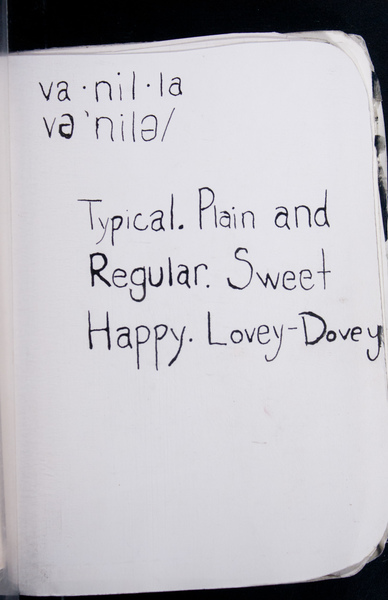 va·nil·la
və'nilə/
Typical. Plain and
Regular. Sweet
Happy. Lovey-Dovey